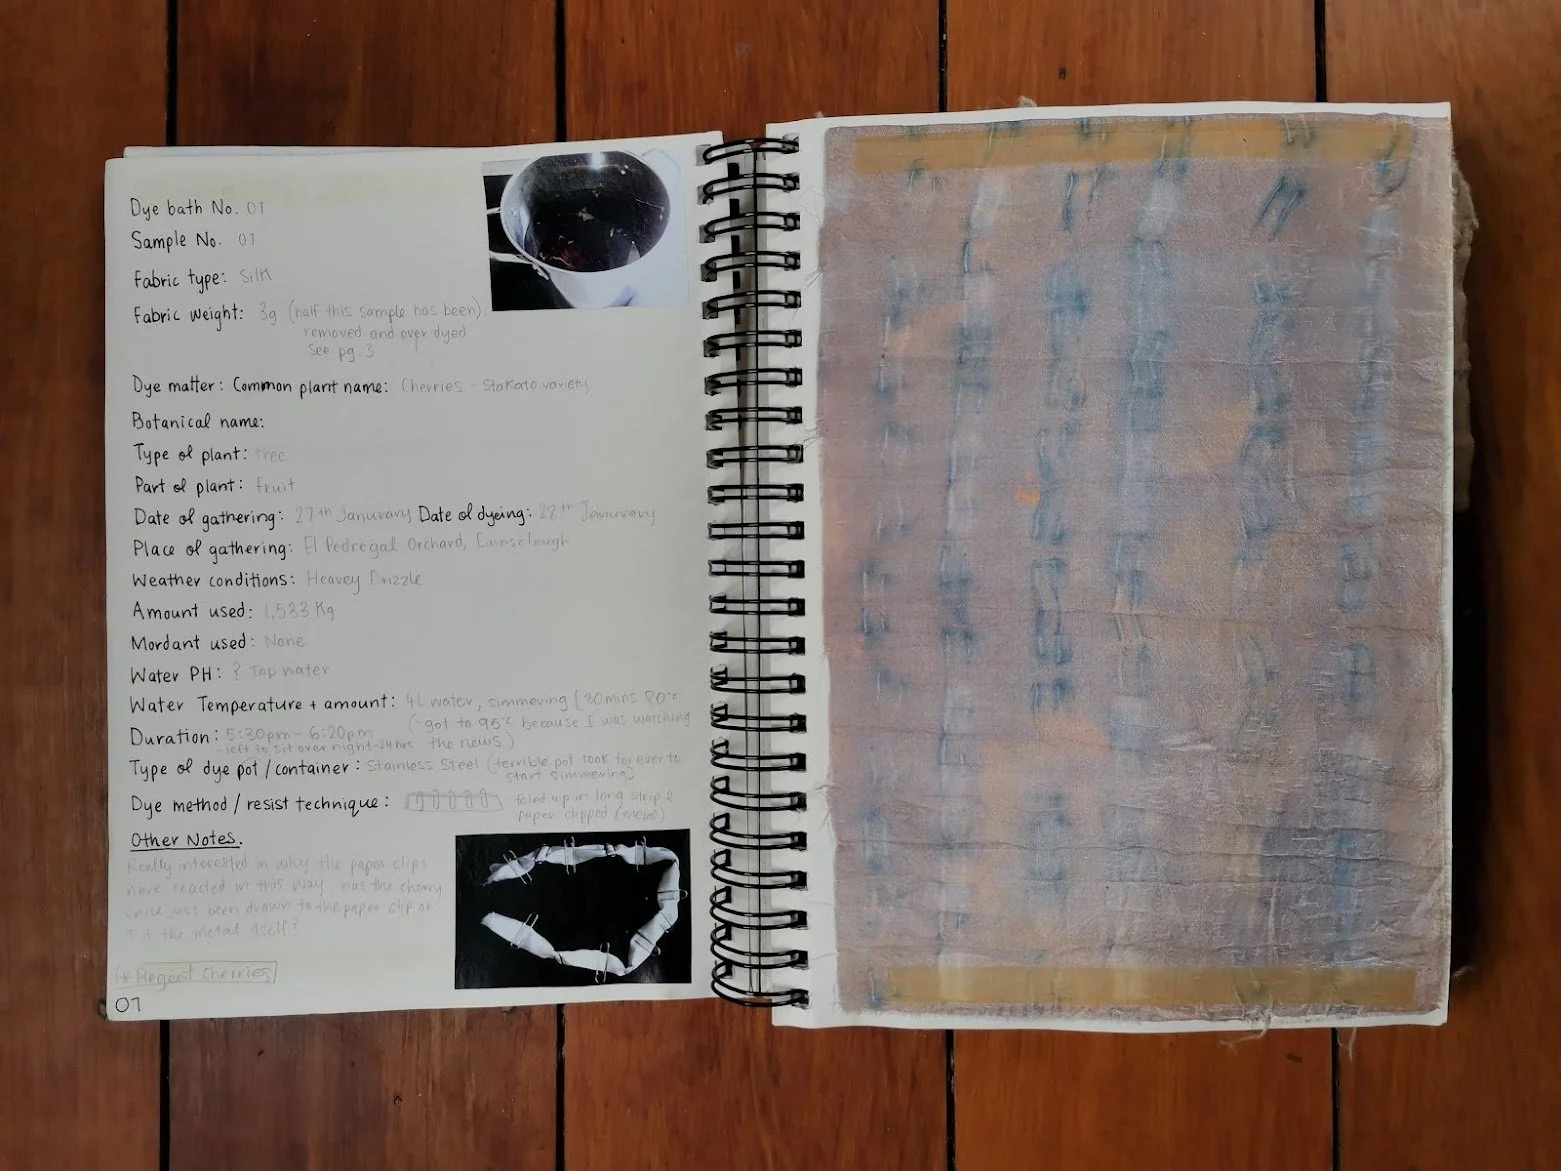 Dye bath No. 01
Sample No. 01
Fabric type: Silk
Fabric weight: 3g (half this sample has been)
removed and over dyed
See pg. 3
Dye matter: Common plant name: Cherries - Stakato variety
Botanical name:
Type of plant: tree
Part of plant: fruit
Date of gathering: 27th Januvary Date of dyeing: 28th Januvary
Place of gathering: El Pedregal Orchard, Earnscleugh
Weather conditions: Heavey Drizzle
Amount used: 1,533 Kg
Mordant used: None
Water PH: ? Tap water
Water Temperature + amount: 4L water, simmering (30mins 80°c
(-got to 95°c because I was watching
Duration: 5:30pm - 6:20pm
- left to sit over night -24hrs the news.)
Type of dye pot / container: Stainless Steel (terrible pot took forever to
start simmering)
Dye method / resist technique: - foled up in long strip &
paper clipped (metal)
Other Notes.
Really interested in why the paper clips
have reacted in this way, has the cherry
juice just been drawn to the paper clip or
is it the metal itself?
* Repeat Cherries
01